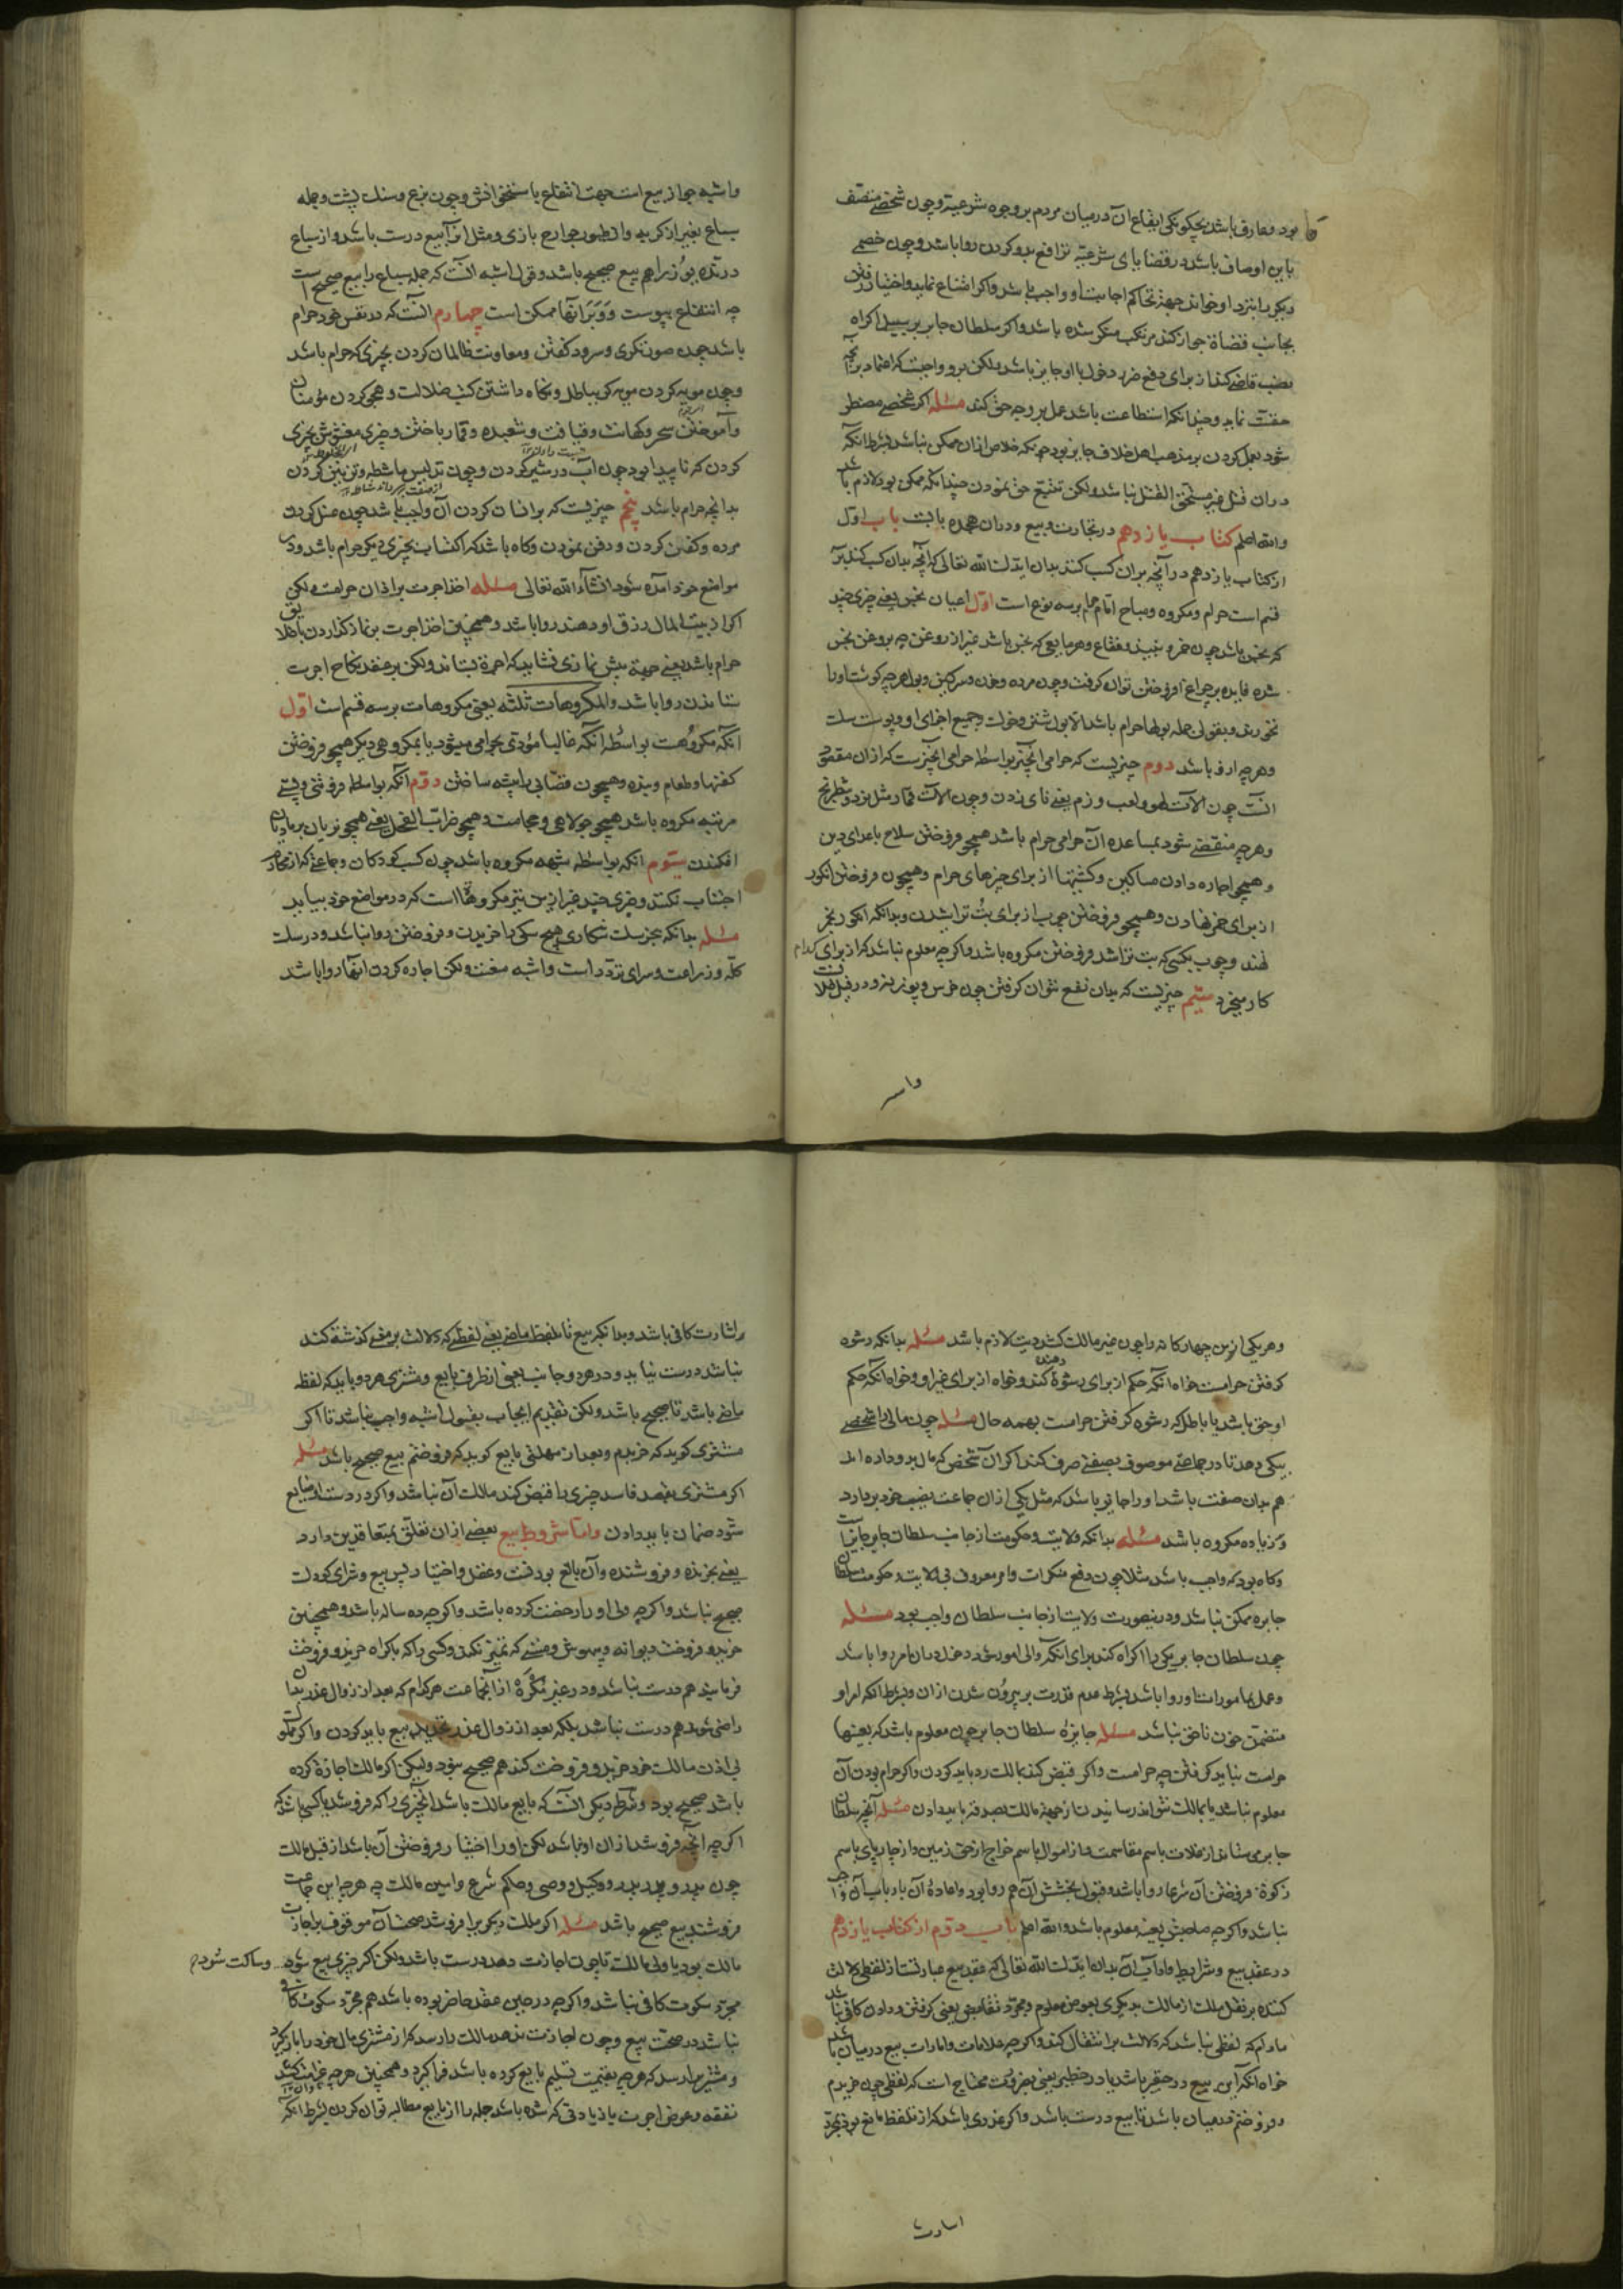 بود و عارف باشد بچگونگی ایقاع آن در میان مردم بر وجوه شرعیة و چون شخصی متصف
باین اوصاف باشد در قضایای شرعیة ترافع بدو کردن روا باشد و چون خصمی
دیگر را بنزد او خواند جهة تحاکم اجابت او واجب باشد و اگر امتناع نماید و اختیار رفتن
بجانب قضاة جور کند مرتکب منکر شده باشد و اگر سلطان جابر بر سبیل اکراه
نصب قاضی کند از برای دفع ضرر دخول با او جایز باشد ولکن برو واجبست که اعتماد بر آنچه
حقست نماید و چندانکه استطاعت باشد عمل بر وجه حق کند مسئله اگر شخصی مضطر
شود بعمل کردن بر مذهب اهل خلاف جایز بود چونکه خلاص ازان ممکن نباشد بشرط آنکه
در ان قتل غیر مستحق القتل نباشد ولکن تتبع حق نمودن چندانکه ممکن بود لازم باشد
والله اعلم کتاب یازدهم در تجارت و بیع و در ان هجده بابست باب اول
از کتاب یازدهم در آنچه بران کسب کنند بدان ایدك الله تعالی که آنچه بدان کسب کنند بر
قسم است حرام و مکروه و مباح اما حرام بر سه نوع است اول اعیان نجس یعنی چیزی چند
که نجس باشد چون خمر و نبیذ و فقاع و هر مایعی که نجس باشد غیر از روغن چه بروغن نجس
شده فایده بر چراغ افروختن توان گرفت و چون مرده و خون و سرکین و بول هر چه گوشت او را
نخورند و بقولی جمله بولها حرام باشد الا بول شتر و خوک و جمیع اجزای او و پوست سک
و هر چه ازو باشد دوم چیزیست که حرامی آنچیز بواسطه حرامی آنچیزست که ازان مقصود
آنست چون آلات لهو و لعب و زمر یعنی نای زدن و چون آلات قمار مثل نرد و شطرنج
و هر چه منقضی شود بمساعده آن حرامی حرام باشد همچو فروختن سلاح باعدای دین
و همچو اجاره دادن مساکین و کشتیها از برای چیزهای حرام و همچون فروختن انگور
از برای خمر نهادن و همچو فروختن چوب از برای بت تراشیدن و بدانکه انگور بخمر
نهند و چوب بکسی که بت تراشد فروختن مکروه باشد و اگر چه معلوم نباشد که از برای کدام
کار میخرد سیم چیزیست که بدان نفع نتوان گرفتن چون خرس و بوزینه و در فیل خلافست
واشبه
واشبه جواز بیع است جهت انتفاع باستخوانش و چون بزع و سنك پشت و جمله
سباع بغیر از گربه و از طیور جوارح بازی و مثل او آ بیع درست باشد و از سباع
درنده یوز را هم بیع صحیح باشد و قول اشبه آنست که جمله سباع را بیع صحیح است
چه انتفاع بپوست و وبر آنها ممکن است چهارم آنست که در نفس خود حرام
باشد چون صورتگری و سرود گفتن و معاونت ظالمان کردن بچیزی که حرام باشد
و چون مویه کردن مویه گر بباطل و نگاه داشتن کتب ضلالت و هجو کردن مؤمنان
و آموختن سحر و کهانت و قیافت و شعبده و قمار باختن و چیزی مغشوش بچیزی
کردن که ناپیدا بود چون آب در شیر کردن و چون تدلیس ماشطه و تزیین کردن
بدانچه حرام باشد پنجم چیزیست که بر انسان کردن آن واجب باشد چون غسل کردن
مرده و کفن کردن و دفن نمودن و گاه باشد که اکتساب بچیزی دیگر حرام باشد و در
مواضع خود آمده شود انشاء الله تعالی مسئله اخذ اجرت بر اذان حرامست ولکن
اگر از بیت المال رزق او دهند روا باشد و همچنین اخذ اجرت بر نماز گذاردن با خلایق
حرام باشد یعنی جهة پیش نمازی نشاید که اجرة بستاند ولکن بر عقد نکاح اجرت
ستاندن روا باشد والمکروهات ثلثه یعنی مکروهات بر سه قسم است اول
آنکه مکروهست بواسطه آنکه غالبا مؤدی بحرامی میشود یا بمکروهی دیگر همچو فروختن
کفنها و طعام و بنده و همچون قصابی را پیشه ساختن دوم آنکه بواسطه فروتنی و پستی
مرتبه مکروه باشد همچو جولاهی و حجامت و همچو ضراب الفحل یعنی همچو نریان بر مادیان
افکندن سیوم آنکه بواسطه شبهه مکروه باشد چون کسب کودکان و جماعتی که از محارم
اجتناب نکنند و چیزی چند غیر ازین نیز مکروهست که در مواضع خود بیاید
مسئله بدانکه بجز سك شکاری هیچ سکی را خریدن و فروختن روا نباشد و در سك
کله و زراعت و سرای تردد است و اشبه منعست ولکن اجاره کردن اینها روا باشد
و هر یکی ازین چهارگانه را چون غیر مالك کشد دیت لازم باشد مسئله بدانکه رشوه
گرفتن حرامست خواه آنکه حکم از برای رشوة دهنده کند و خواه از برای غیر او و خواه آنکه حکم
او حق باشد یا باطل که رشوه گرفتن حرامست بهمه حال مسئله چون مالی را شخصی
بیکی دهد تا در جماعتی موصوف بصفتی صرف کند اگر آن شخص که مال بدو داده اند
هم بدان صفت باشد او را جایز باشد که مثل یکی ازان جماعت نصیب خود بردارد
و زیاده مکروه باشد مسئله بدانکه ولایت و حکومت از جانب سلطان جابر جایزست
و گاه بود که واجب باشد مثلا چون دفع منکرات و امر معروف بی ولایت و حکومت سلطان
جابره ممکن نباشد و درینصورت ولایت از جانب سلطان واجب بود مسئله
چون سلطان جابر یکی را اکراه کند برای آنکه والی امور شود دخول دران امر روا باشد
و عمل بمأمورات او روا باشد بشرط عدم قدرت بر بیرون شدن ازان و بشرط آنکه امر او
متضمن خون ناحق نباشد مسئله جایزه سلطان جابر چون معلوم باشد که بعینها
حرامست نباید گرفتن چه حرامست و اگر قبض کند بمالك رد باید کردن و اگر حرام بودن آن
معلوم نباشد یا بمالك نتواند رسانیدن از جهة مالك بصدقه باید دادن مسئله آنچه سلطان
جابر می ستاند از غلات باسم مقاسمت و از اموال باسم خراج از حق زمین و از چارپای باسم
زکوة فروختن آن شرعا روا باشد و قبول بخشش آن هم روا بود و اعادۀ آن بارباب آن واجب
نباشد و اگر چه صاحبش بعینه معلوم باشد والله اعلم باب دوم از کتاب یازدهم
در عقد بیع و شرایط و آداب آن بدان ایدك الله تعالی که عقد بیع عبارتست از لفظی دلالت
کننده بر نقل ملك از مالك بدیگری بعوض معلوم و مجرد تقابض یعنی گرفتن و دادن کافی نباشد
مادام که لفظی نباشد که دلالت بر انتقال کند و اگر چه علامات و امارات بیع در میان باشد
خواه آنکه این بیع در حقیر باشد یا در خطیر یعنی بهر وقت محتاج است که لفظی چون خریدم
و فروختم در میان باشد تا بیع درست باشد و اگر عذری باشد که از تلفظ مانع بود بمجرد
اشارت
اشارت کافی باشد و بدانکه بیع تا بلفظ ماضی یعنی لفظی که دلالت بر معنی گذشته کند
نباشد درست نیاید و در هر دو جانب یعنی از طرف بایع و مشتری هر دو باید که لفظ
ماضی باشد تا صحیح باشد ولکن تقدیم ایجاب بقول اشبه واجب نباشد تا اگر
مشتری گوید که خریدم و بعد از مهلتی بایع گوید که فروختم بیع صحیح باشد مسئله
اگر مشتری بعقد فاسد چیزی را قبض کند مالك آن نباشد و اگر در دست او ضایع
شود ضمان باید دادن واما شروط بیع بعضی ازان تعلق بمتعاقدین دارد
یعنی بخرنده و فروشنده و آن بالغ بودنست و عقل و اختیار پس بیع و شرای کودك
صحیح نباشد و اگر چه ولی او را رخصت کرده باشد و اگر چه ده ساله باشد و همچنین
خرید و فروخت دیوانه و بیهوش و مستی که تمییز نکند و کسی را که باکراه خرید و فروخت
فرمایند هم درست نباشد و در غیر مکره ازانجماعت هر کدام که بعد از زوال عذر بدان
راضی شوند هم درست نباشد بلکه بعد از زوال عذر تجدید بیع باید کردن و اگر مملوك
بی اذن مالك خود خرید و فروخت کند هم صحیح نبود ولیکن اگر مالك اجازة کرده
باشد صحیح بود و شرط دیگر آنست که بایع مالك باشد آنچیزی را که فروشد یا کسی باشد که
اگر چه آنچه فروشد ازان او نباشد لکن او را اختیار فروختن آن باشد از قبل مالك
چون پدر و پدر پدر و وکیل و وصی و حاکم شرع و امین مالك چه هر چه این جماعت
فروشند بیع صحیح باشد مسئله اگر ملك دیگر برا فروشد صحت آن موقوف بر اجازت
مالك بود یا ولی مالك تا چون اجازت دهد درست باشد ولکن اگر چیزی بیع شود و ساکت شود
مجرد سکوت کافی نباشد و اگر چه در حین عقد حاضر بوده باشد هم مجرد سکوت کافی
نباشد در صحت بیع و چون اجازت ندهد مالك را رسد که از مشتری مال خود را باز گیرد
و مشتری را رسد که هر چه بقیمت تسلیم بایع کرده باشد فرا گیرد و همچنین هر چه غرامت کشد
نفقه و عوض اجرت یا زیادتی که شده باشد جمله را از بایع مطالبه توان کردن بشرط آنکه